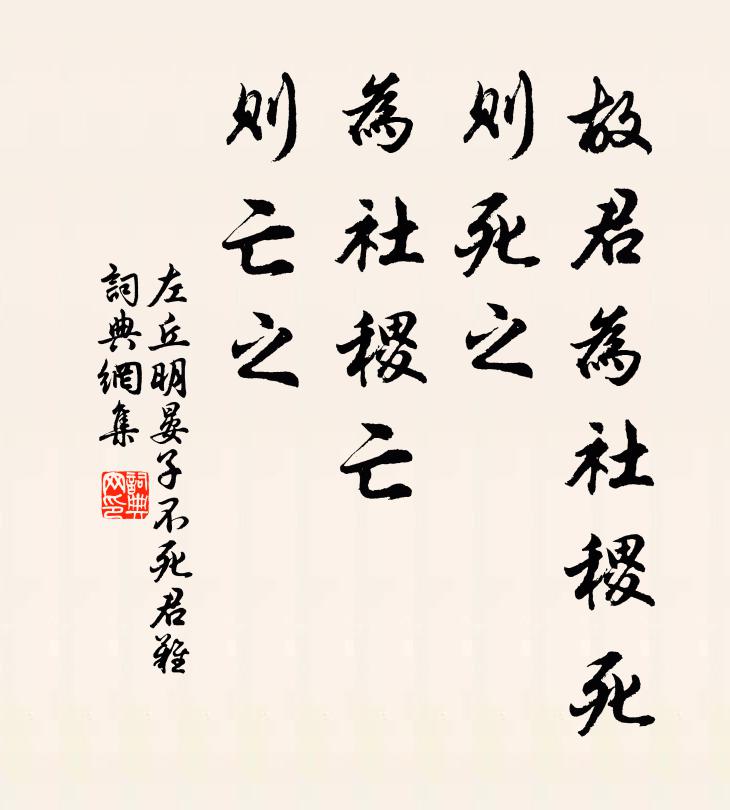 故君為社稷死
則死之
為社稷亡
則亡之
左丘明晏子不死君難
詞典網集
詞典
网印